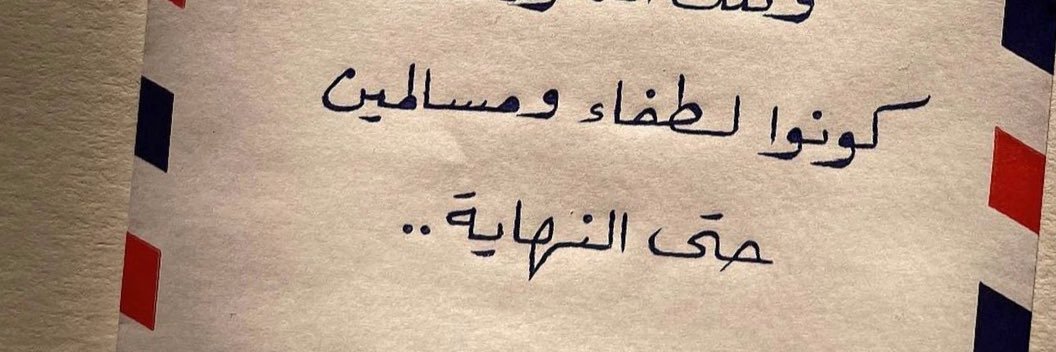 كونوا لطفاء ومسالمين
حتى النهاية ..